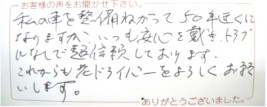 お客様の声をお聞かせ下さい。
私の車を整備ねがって50年近くに
なりますが、いつも安心を戴き、トラブ
ルなしで超信頼しております。
これからも老ドライバーをよろしくお願
いします。
ありがとうございました。